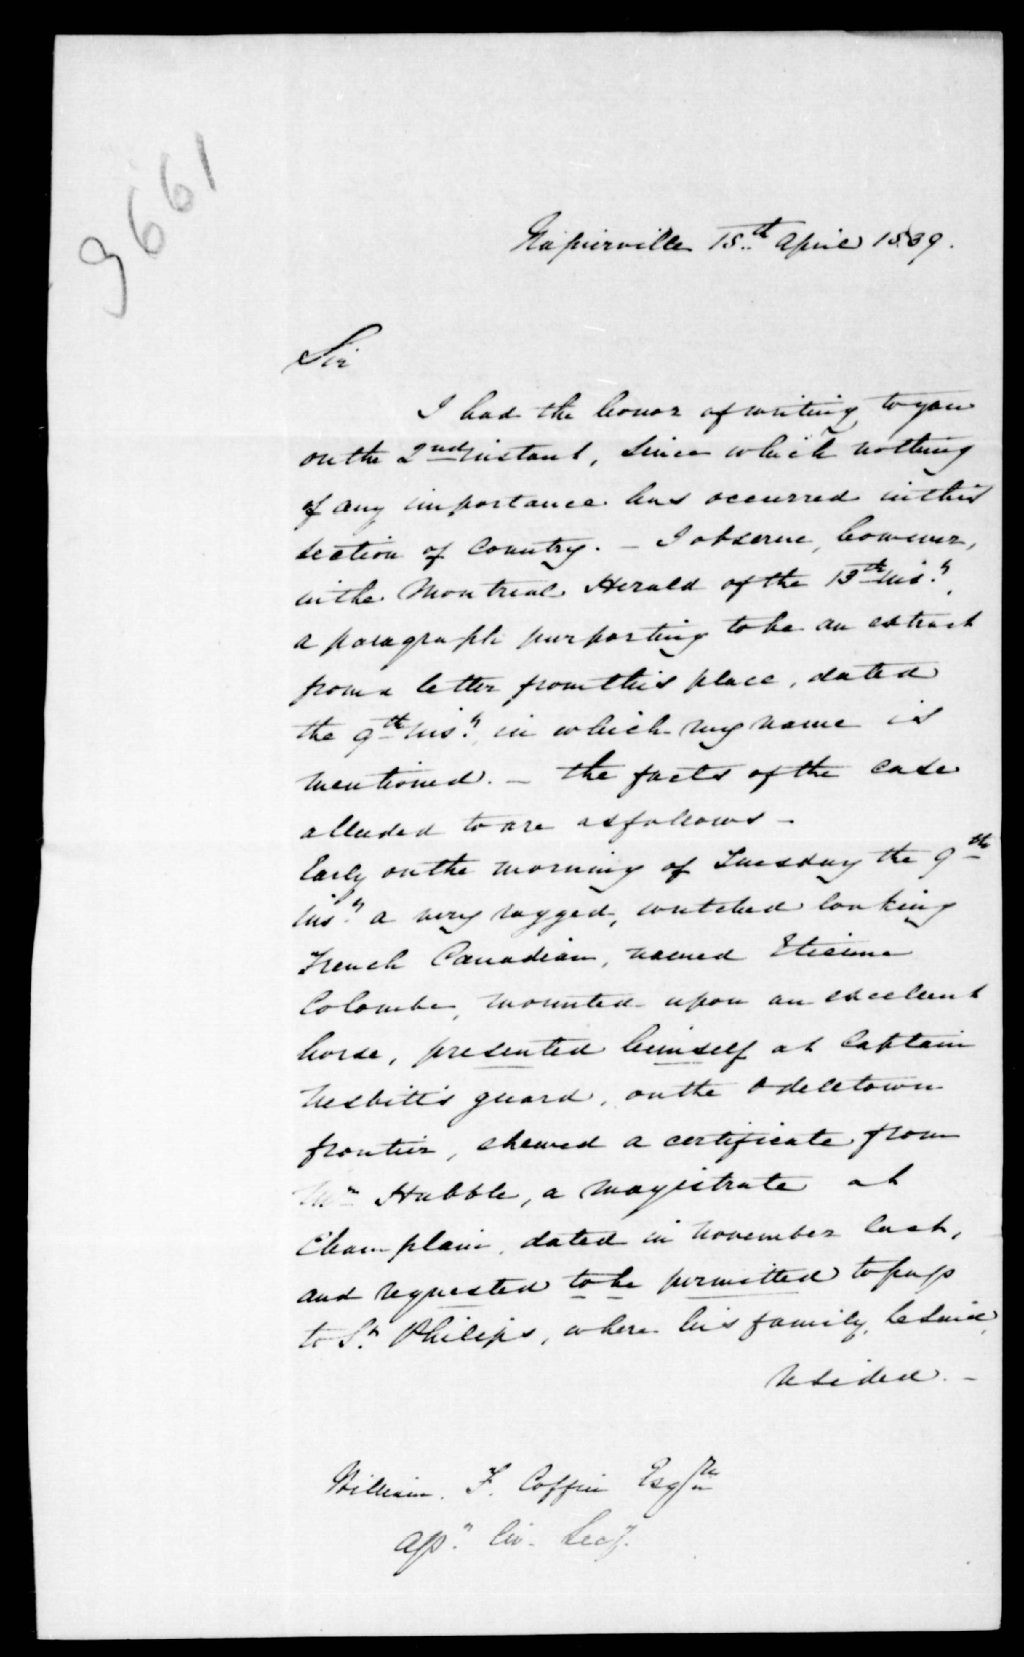 3661
Napierville 15th April 1839.
Sir
I had the honor of writing to you
on the 2nd instant, since which nothing
of any importance has occurred in this
section of Country. - I observe, however,
in the Montreal Herald of the 13th inst.
a paragraph purporting to be an extract
from a letter from this place, dated
the 9th inst. in which my name is
mentioned. - the facts of the case
alluded to are as follows -
Early on the morning of Tuesday the 9th
inst. a very ragged, wretched looking
French Canadian, named Etienne
Colombe, mounted upon an excellent
horse, presented himself at Captain
Nesbitt's guard, on the Odelltown
frontier, shewed a certificate from
Mr Hubble, a magistrate at
Champlain, dated in November last,
and requested to be permitted to pass
to St Philips, where his family, he said,
resided. -
William. F. Coffin Esqre
Asst. Civ. Secy.